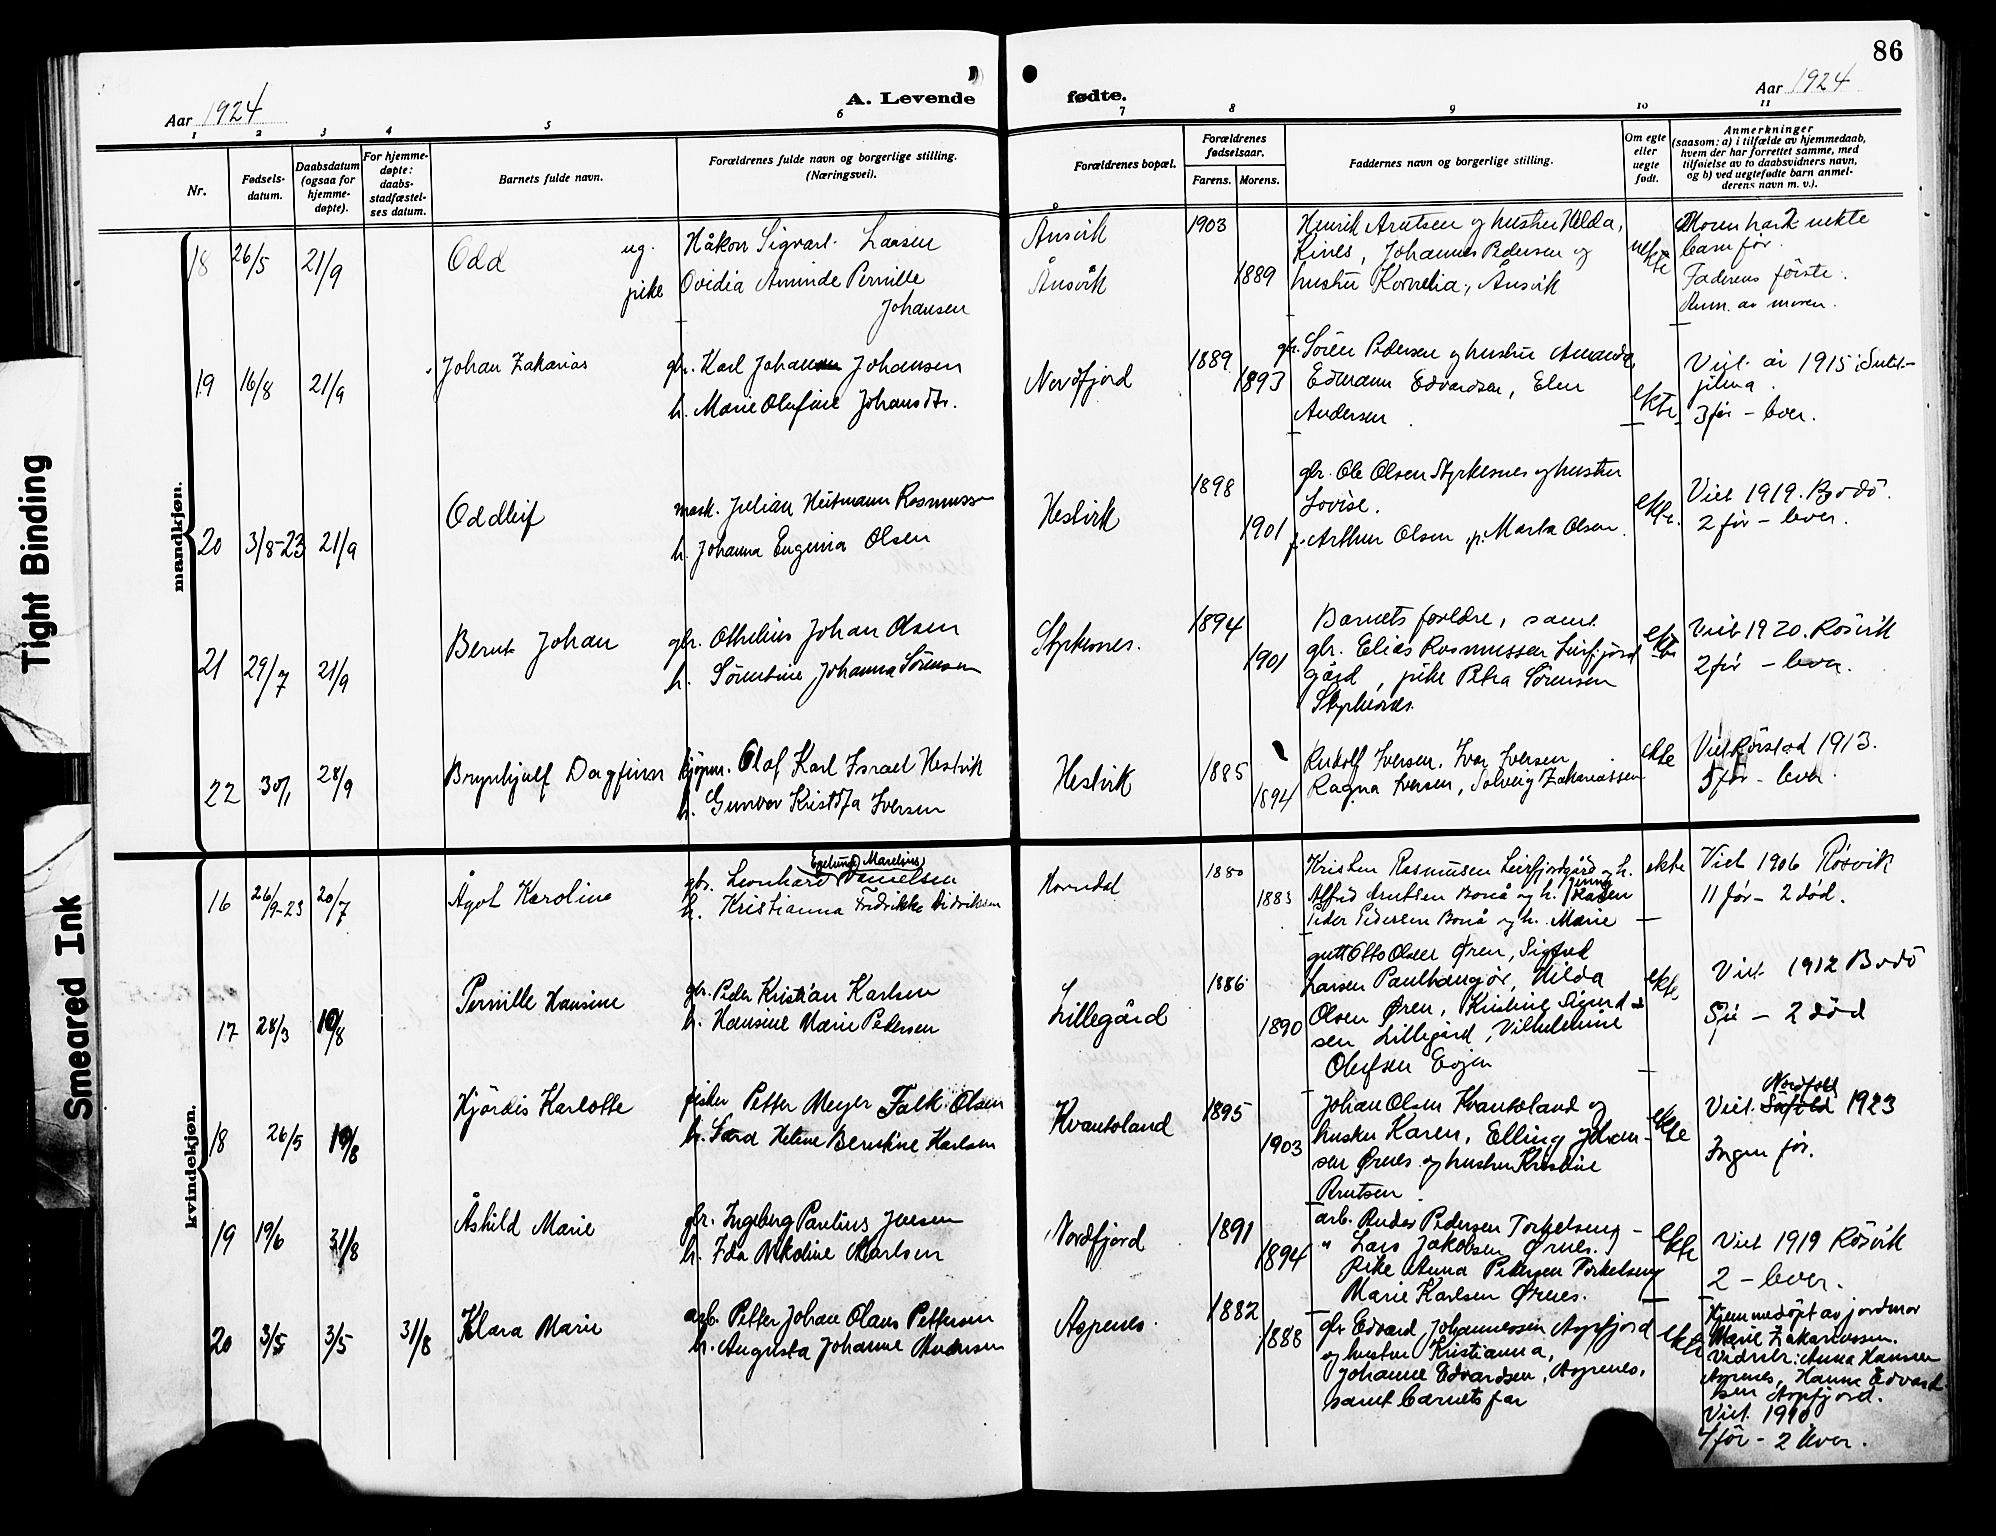 86
Aar 1924
A. Levende
fødte.
Aar 1924
1 2 3 4 5 6 7 8 9 10 11
Nr.
Fødsels-
datum.
Daabsdatum
(ogsaa for
hjemme-
døpte).
For hjemme-
døpte:
daabs-
stadfæstel-
ses datum.
Barnets fulde navn.
Forældrenes fulde navn og borgerlige stilling.
(Næringsvei).
Forældrenes bopæl.
Forældrenes
fødselsaar.
Farens. Morens.
Faddernes navn og borgerlige stilling.
Om egte
eller
uegte
født.
Anmerkninger
(saasom: a) i tilfælde av hjemmedaab,
hvem der har forrettet samme, med
tilføielse av to daabsvidners navn,
og b) ved uegtefødte barn anmel-
derens navn m. v.).
mandkjøn.
18 26/5 21/9 Odd
ug. Håkon Sigvart Larsen
pike Ovidia Aminde Pernille
Johansen
Ånsvik
Ånsvik
1903
1889
Henrik Arntsen og hustru Hilda,
Kines, Johannes Pedersen og
hustru Kornelia, Ånsvik
uekte
Moren har 2 uekte
barn før.
Faderens første.
Anm. av moren.
19 16/8 21/9 Johan Zakarias
gbr. Karl Johan Johansen
h. Marie Olufine Johansdtr.
Nordfjord
1889
1893
gbr. Sören Pedersen og hustru Amanda
Edmann Edvardsen, Elen
Andersen
ekte
Viet år 1915 Sulit-
jelma.
3 før - lever.
20 3/8-23 21/9 Oddleif
mask. Julian Heitmann Rasmussen
h. Johanna Eugenia Olsen
Hestvik
1898
1901
gbr. Ole Olsen Styrkesnes og hustru
Lovise.
Arthur Olsen, p. Marta Olsen
ekte.
Viet 1919. Bodö.
2 før - lever.
21 29/7 21/9 Bernt Johan
gbr. Othelius Johan Olsen
h. Sörentine Johanna Sörensen
Styrkesnes.
1894
1901
Barnets foreldre, samt
gbr. Elias Rasmussen Leirfjord
gård, pike Petra Sörensen
Styrkesnes
ekte
Viet 1920. Rösvik
2 før - lever.
22 30/1 28/9 Brynhjulf Dagfinn
kjøpm. Olaf Karl Israel Hestvik
h. Gunvor Kristofa Iversen
Hestvik
1885
1894
Rudolf Iversen, Ivar Iversen
Ragna Iversen, Solveig Zakariassen
ekte
Viet Rörstad 1913.
5 før - lever.
kvindekjøn.
16 26/9-23 20/7 Ågot Karoline
Marelius
gbr. Leonhard Danielsen
h. Kristianna Fredrikke Didriksen
Horndal
1880
1883
Kristen Rasmussen Leirfjordgård og h.
Jenny
Alfred Arntsen Bonå og h.
Peder Pedersen Bonå og h. Marie
ekte
Viet 1906 Rösvik
11 før - 2 död.
17 28/3 10/8 Pernille Hansine
gbr. Peder Kristian Karlsen
h. Hansine Marie Pedersen
Lillegård
1886
1890
gutt Otto Olsen Ören, Sigfred
Larsen, Hilda
Olsen Ören, Kristine Sigurd-
sen Lillegård, Vilhelmine
Olufsen Evjen
ekte
Viet 1912 Bodö
5 før - 2 död
18 26/5 10/8 Hjördis Karlotte
fisker Petter Meyer Falk Olsen
h. Sara Helene Berntine Karlsen
Kvantoland
1895
1903
Johan Olsen Kvantoland og
hustru Karen, Elling Johan-
sen Örnes og hustru Kristine
Arntsen
ekte
Nordfold
Viet 1923
Ingen før.
19 19/6 31/8 Åshild Marie
gbr. Ingeberg Paulius Jensen
h. Ida Nikoline Karlsen
Nordfjord
1891
1894
arb. Anders Pedersen Torkelseng
" Lars Jakobsen Örnes.
Pike Anna Pedersen Torkelseng
Marie Karlsen Örnes.
ekte
Viet 1919 Rösvik
2 - lever.
20 3/5 3/5 31/8 Klara Marie
arb. Petter Johan Olaus Pettersen
h. Augusta Johanne Andersen
Aspenes.
1882
1888
gbr Edvard Johannessen Aspfjord
og hustru Kristianna,
Johanne Edvardsen, Aspenes,
samt barnets far
ekte
Hjemmedöpt av jordmor
Marie Zakariassen.
Vidner: Anna Hansen
Aspenes, Hanna Edvard-
sen Aspfjord.
Viet 1910
4 før - 2 lever.
Tight Binding
Smeared Ink